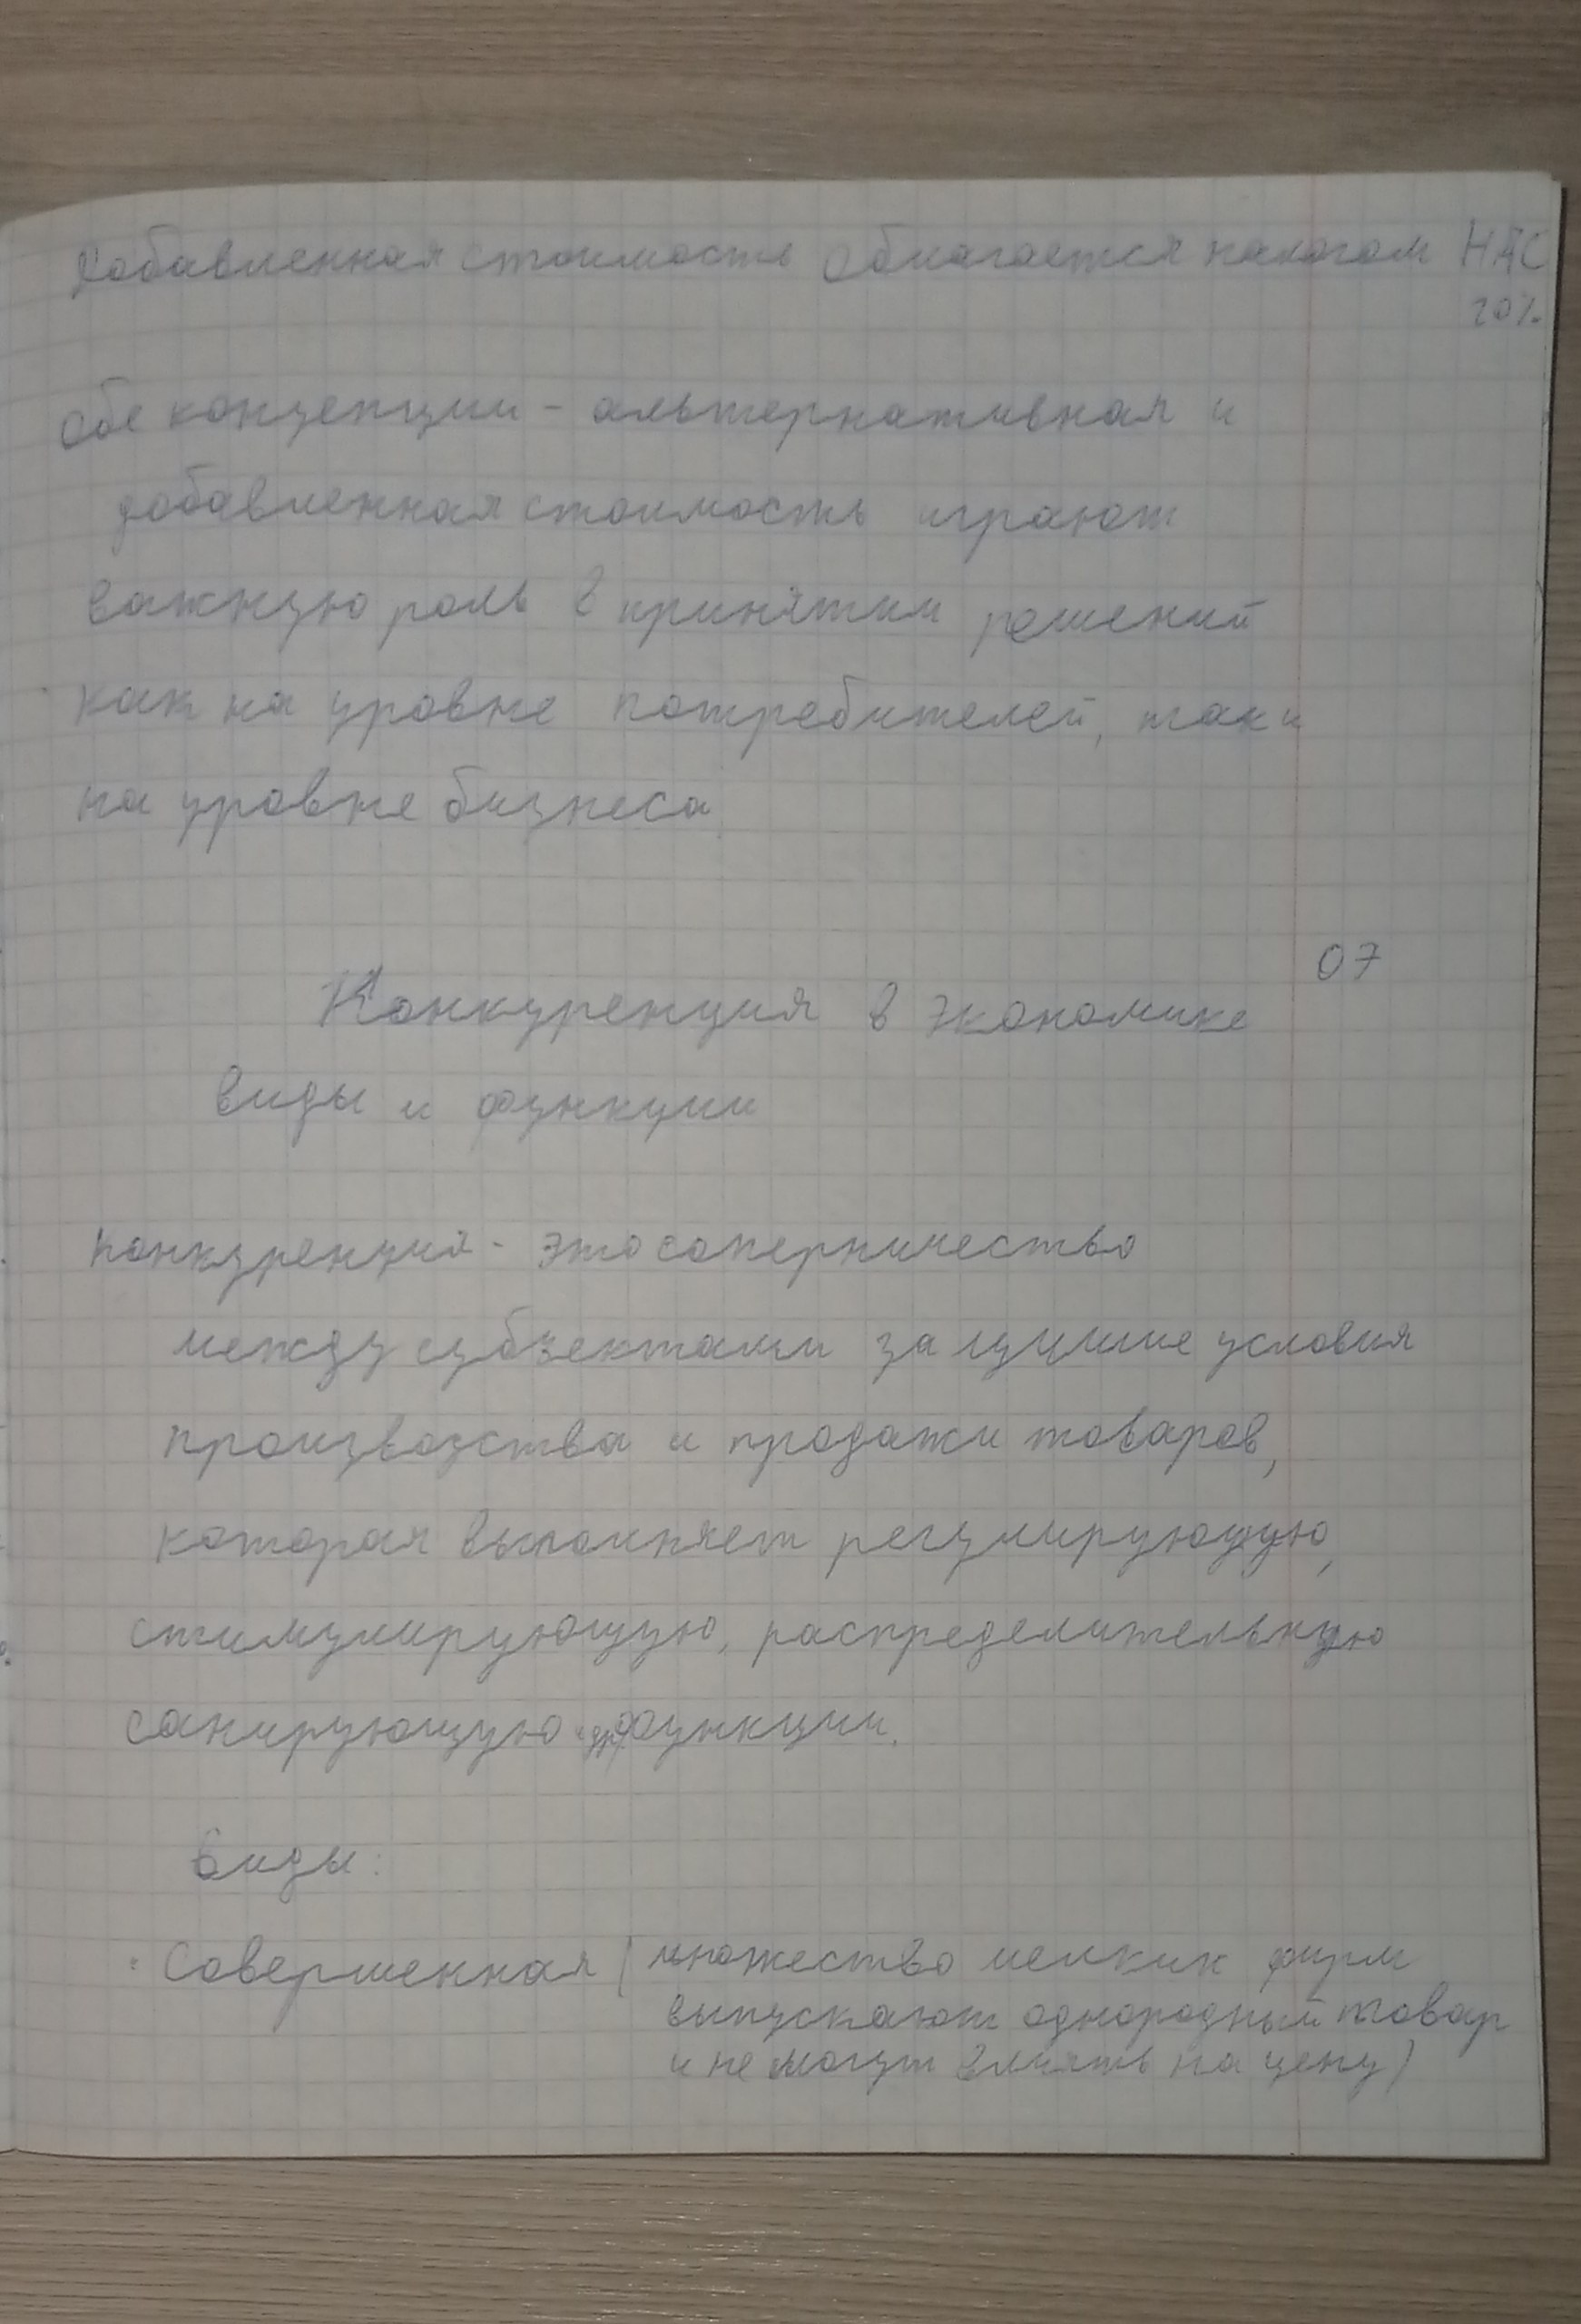 Добавленная стоимость облагается налогом НДС
20%
Обе концепции - альтернативная и
добавленная стоимость играют
важную роль в принятии решений
как на уровне потребителей, так и
на уровне бизнеса
07
Конкуренция в экономике
виды и функции
Конкуренция - это соперничество
между субъектами за лучшие условия
производства и продажи товаров,
которая выполняет регулирующую,
стимулирующую, распределительную
санирующую и др. функции.
Виды:
Совершенная (множество мелких фирм
выпускают однородный товар
и не могут влиять на цену)